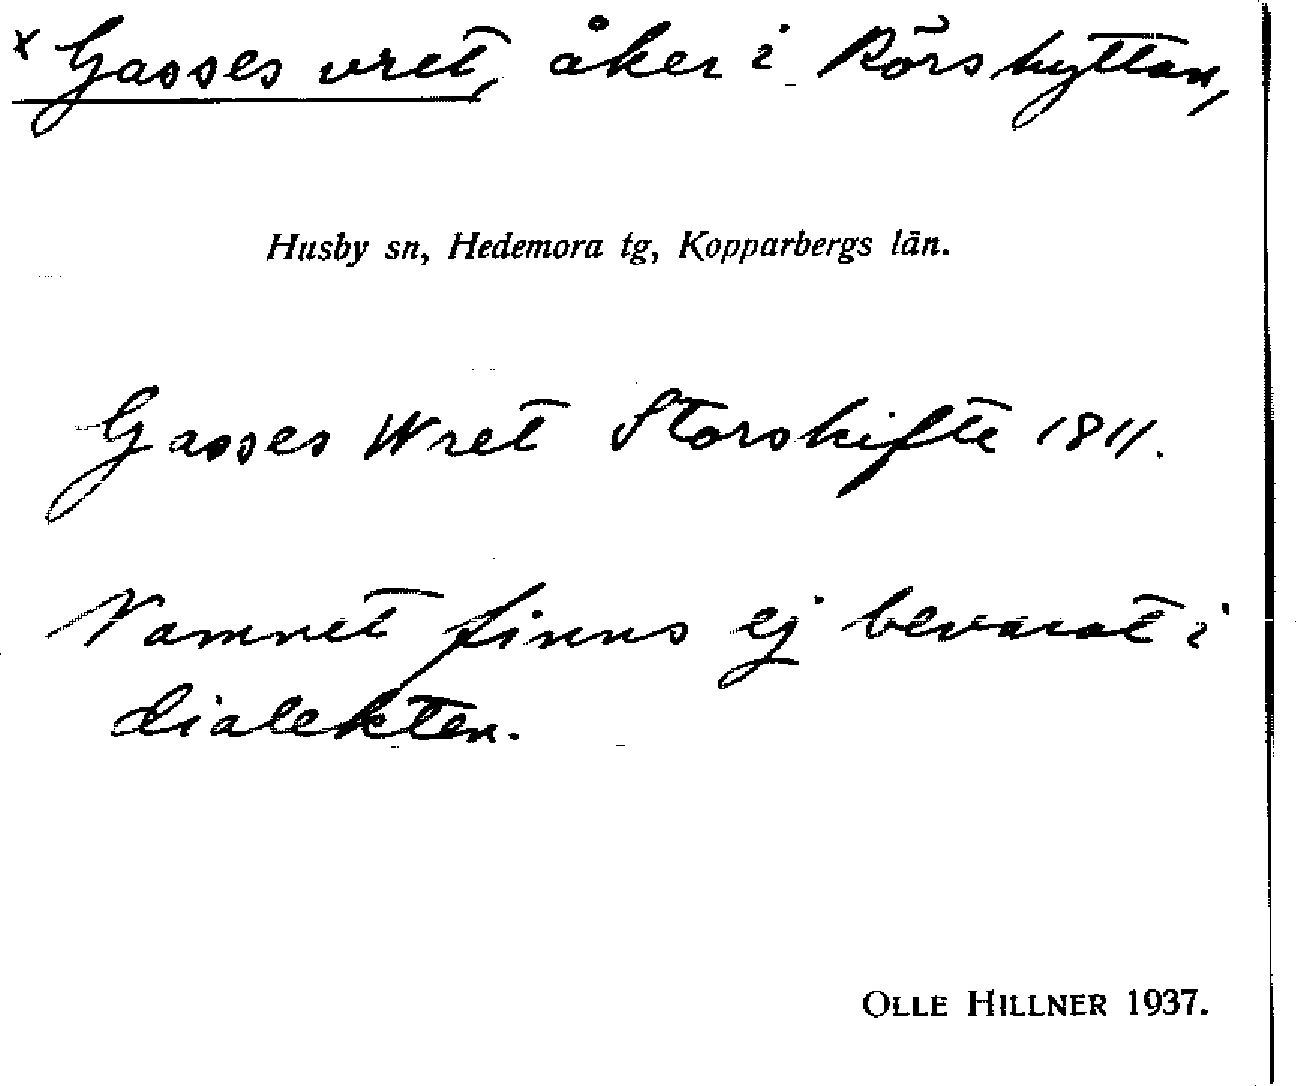 x Gasses vret, åker i Rörshyttan,
Husby sn, Hedemora tg, Kopparbergs län.
Gasses Wret Storskifte 1811.
Namnet finns ej bevarat i
dialekten.
OLLE HILLNER 1937.